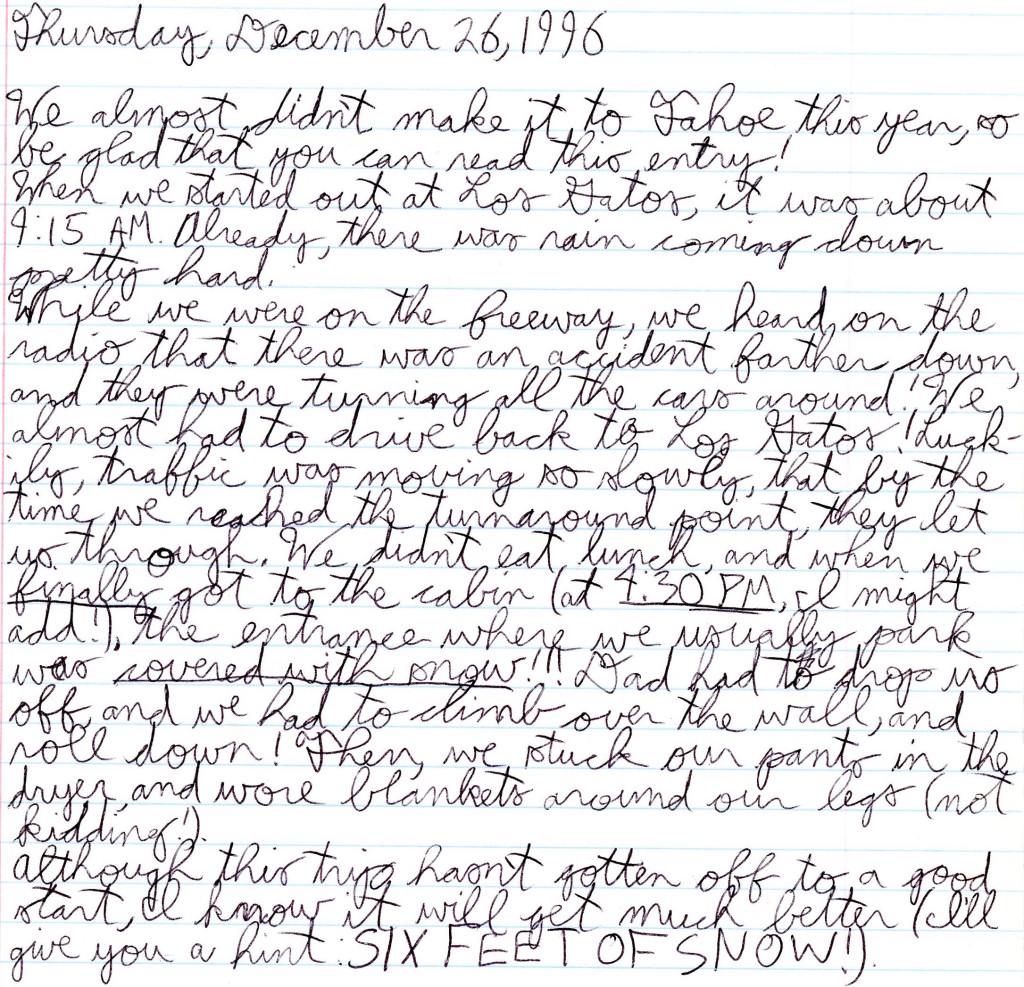 Thursday, December 26, 1996
We almost didn't make it to Tahoe this year, so
be glad that you can read this entry!
When we started out at Los Gatos, it was about
9:15 AM. Already, there was rain coming down
pretty hard.
While we were on the freeway, we heard on the
radio that there was an accident farther down,
and they were turning all the cars around! We
almost had to drive back to Los Gatos! Luck-
ily, traffic was moving so slowly, that by the
time we reached the turnaround point, they let
us through. We didn't eat lunch, and when we
finally got to the cabin (at 4:30 PM, I might
add!), the entrance where we usually park
was covered with snow!!! Dad had to drop us
off, and we had to climb over the wall, and
roll down! Then, we stuck our pants in the
dryer, and wore blankets around our legs (not
kidding!).
Although this trip hasn't gotten off to a good
start, I know it will get much better (I'll
give you a hint: SIX FEET OF SNOW!).